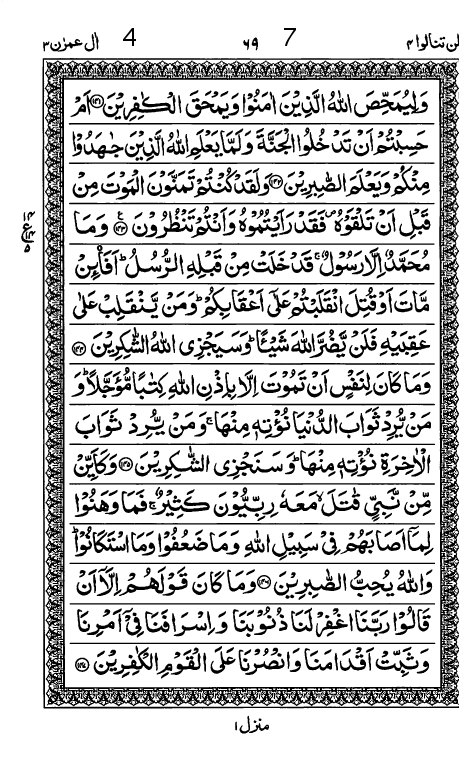 لن تنالوا ۴ 7 ۶۹ 4 اٰل عمرٰن ۳
وَلِيُمَحِّصَ اللّٰهُ الَّذِيْنَ اٰمَنُوْا وَيَمْحَقَ الْكٰفِرِيْنَ ﴿۱۴۱﴾ اَمْ
حَسِبْتُمْ اَنْ تَدْخُلُوا الْجَنَّةَ وَلَمَّا يَعْلَمِ اللّٰهُ الَّذِيْنَ جٰهَدُوْا
مِنْكُمْ وَيَعْلَمَ الصّٰبِرِيْنَ ﴿۱۴۲﴾ وَلَقَدْ كُنْتُمْ تَمَنَّوْنَ الْمَوْتَ مِنْ
قَبْلِ اَنْ تَلْقَوْهُ ۪ فَقَدْ رَاَيْتُمُوْهُ وَاَنْتُمْ تَنْظُرُوْنَ ﴿۱۴۳﴾ وَمَا
مُحَمَّدٌ اِلَّا رَسُوْلٌ ۚ قَدْ خَلَتْ مِنْ قَبْلِهِ الرُّسُلُ ؕ اَفَا۟ئِنْ
مَّاتَ اَوْ قُتِلَ انْقَلَبْتُمْ عَلٰۤى اَعْقَابِكُمْ ؕ وَمَنْ يَّنْقَلِبْ عَلٰى
عَقِبَيْهِ فَلَنْ يَّضُرَّ اللّٰهَ شَيْـًٔا ؕ وَسَيَجْزِى اللّٰهُ الشّٰكِرِيْنَ ﴿۱۴۴﴾
وَمَا كَانَ لِنَفْسٍ اَنْ تَمُوْتَ اِلَّا بِاِذْنِ اللّٰهِ كِتٰبًا مُّؤَجَّلًا ؕ وَ
مَنْ يُّرِدْ ثَوَابَ الدُّنْيَا نُؤْتِهٖ مِنْهَا ۚ وَمَنْ يُّرِدْ ثَوَابَ
الْاٰخِرَةِ نُؤْتِهٖ مِنْهَا ؕ وَسَنَجْزِى الشّٰكِرِيْنَ ﴿۱۴۵﴾ وَكَاَيِّنْ
مِّنْ نَّبِىٍّ قٰتَلَ ۙ مَعَهٗ رِبِّيُّوْنَ كَثِيْرٌ ۚ فَمَا وَهَنُوْا
لِمَاۤ اَصَابَهُمْ فِىْ سَبِيْلِ اللّٰهِ وَمَا ضَعُفُوْا وَمَا اسْتَكَانُوْا ؕ
وَاللّٰهُ يُحِبُّ الصّٰبِرِيْنَ ﴿۱۴۶﴾ وَمَا كَانَ قَوْلَهُمْ اِلَّاۤ اَنْ
قَالُوْا رَبَّنَا اغْفِرْ لَنَا ذُنُوْبَنَا وَاِسْرَافَنَا فِىْۤ اَمْرِنَا
وَثَبِّتْ اَقْدَامَنَا وَانْصُرْنَا عَلَى الْقَوْمِ الْكٰفِرِيْنَ ﴿۱۴۷﴾
منزل ۱